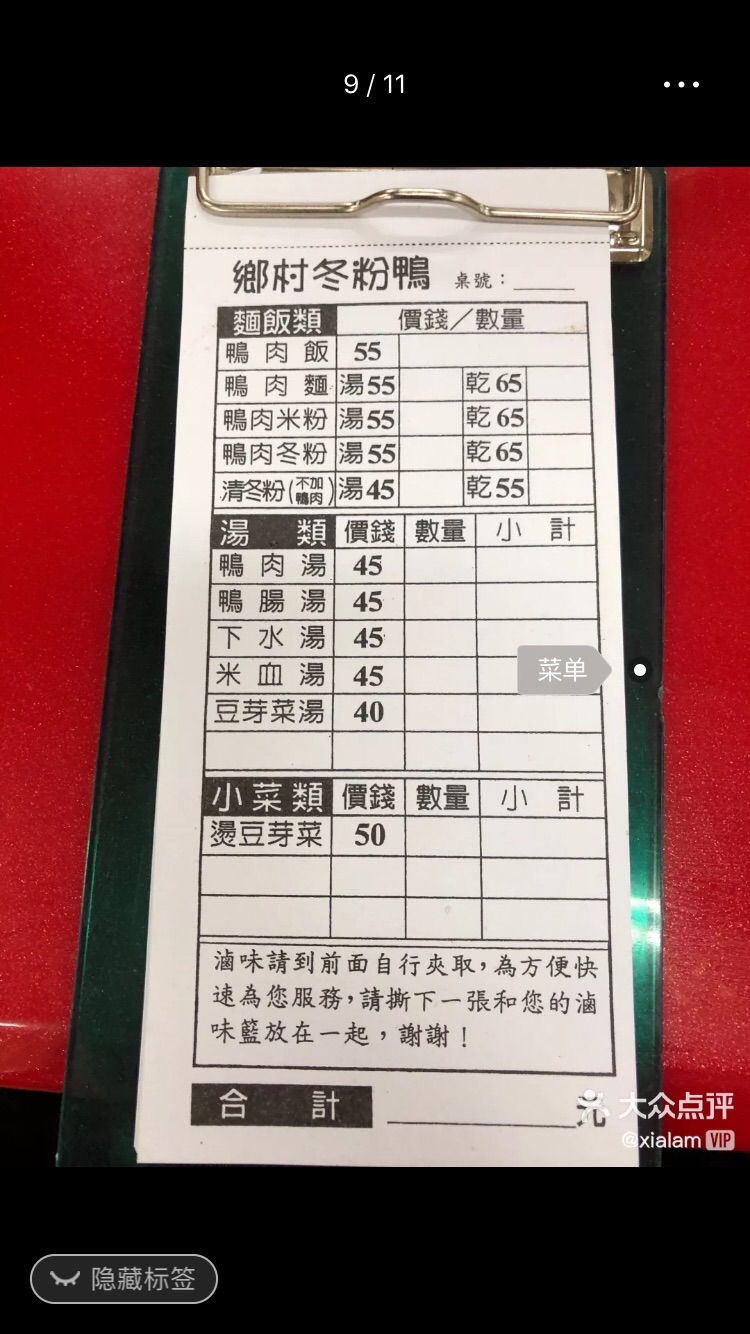 9 / 11
鄉村冬粉鴨 桌號：
麵飯類 價錢／數量
鴨肉飯 55
鴨肉麵 湯55 乾65
鴨肉米粉 湯55 乾65
鴨肉冬粉 湯55 乾65
清冬粉(不加鴨肉) 湯45 乾55
湯類 價錢 數量 小計
鴨肉湯 45
鴨腸湯 45
下水湯 45
米血湯 45
菜单
豆芽菜湯 40
小菜類 價錢 數量 小計
燙豆芽菜 50
滷味請到前面自行夾取，為方便快
速為您服務，請撕下一張和您的滷
味籃放在一起，謝謝！
合計 元
大众点评
@xialam VIP
隐藏标签